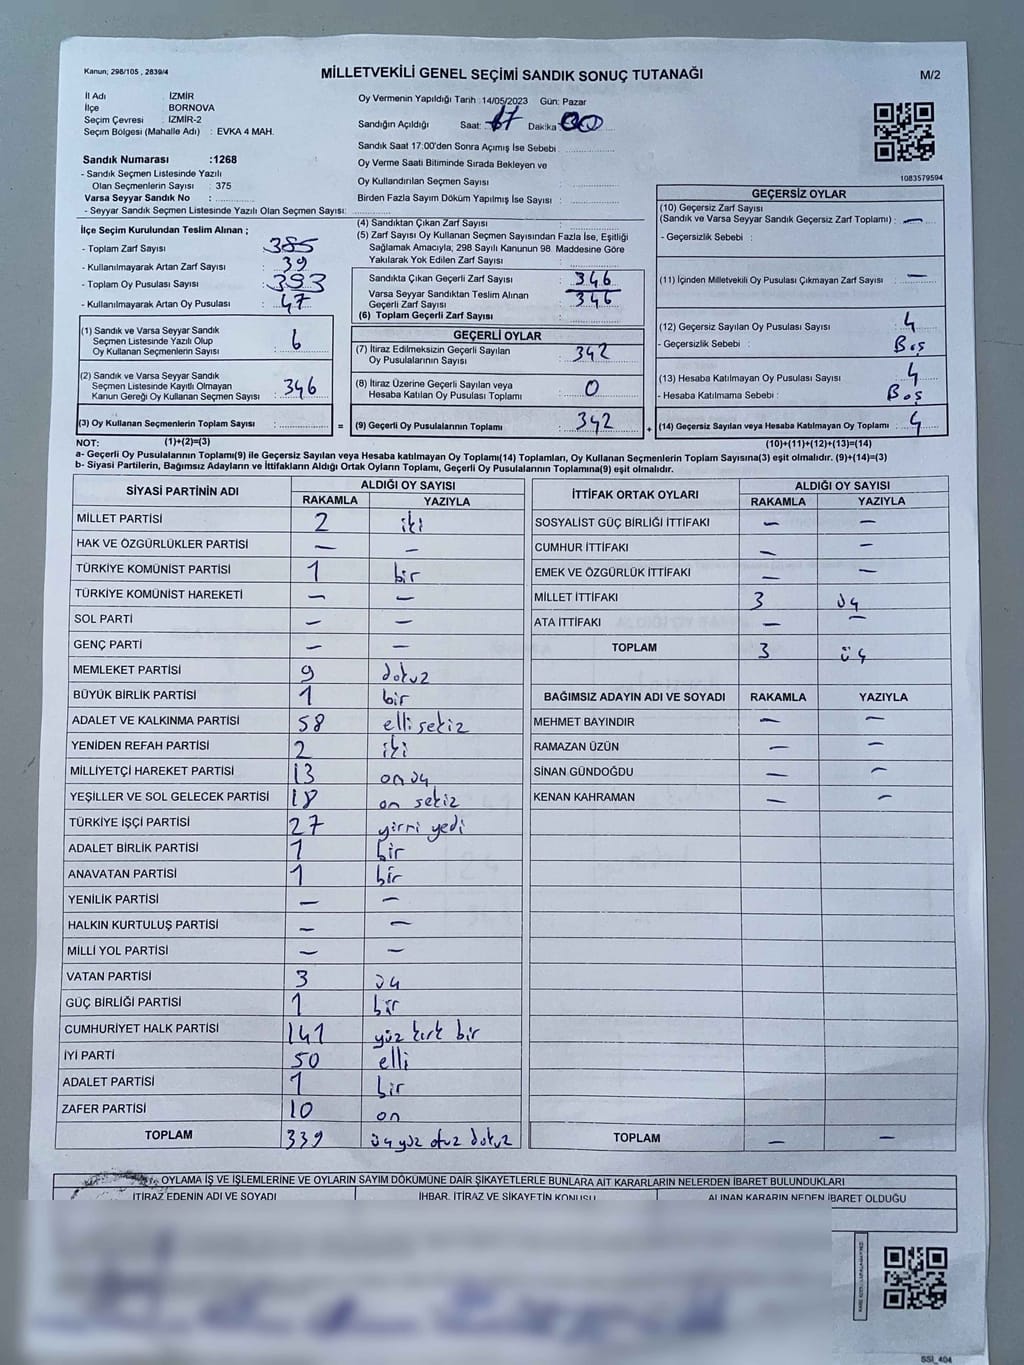 Kanun; 298/105 , 2839/4
MİLLETVEKİLİ GENEL SEÇİMİ SANDIK SONUÇ TUTANAĞI
M/2
İl Adı İZMİR
İlçe : BORNOVA
Seçim Çevresi : İZMİR-2
Seçim Bölgesi (Mahalle Adı) : EVKA 4 MAH.
Sandık Numarası :1268
- Sandık Seçmen Listesinde Yazılı
Olan Seçmenlerin Sayısı : 375
Varsa Seyyar Sandık No :
- Seyyar Sandık Seçmen Listesinde Yazılı Olan Seçmen Sayısı:
Oy Vermenin Yapıldığı Tarih :14/05/2023 Gün: Pazar
Sandığın Açıldığı Saat: 17 Dakika: 00
Sandık Saat 17:00'den Sonra Açımış İse Sebebi :
Oy Verme Saati Bitiminde Sırada Bekleyen ve
Oy Kullandırılan Seçmen Sayısı :
Birden Fazla Sayım Döküm Yapılmış İse Sayısı :
1083579594
İlçe Seçim Kurulundan Teslim Alınan ;
- Toplam Zarf Sayısı : 385
- Kullanılmayarak Artan Zarf Sayısı : 39
- Toplam Oy Pusulası Sayısı : 393
- Kullanılmayarak Artan Oy Pusulası : 47
(1) Sandık ve Varsa Seyyar Sandık
Seçmen Listesinde Yazılı Olup
Oy Kullanan Seçmenlerin Sayısı : 6
(2) Sandık ve Varsa Seyyar Sandık
Seçmen Listesinde Kayıtlı Olmayan
Kanun Gereği Oy Kullanan Seçmen Sayısı : 346
(3) Oy Kullanan Seçmenlerin Toplam Sayısı : =
(4) Sandıktan Çıkan Zarf Sayısı :
(5) Zarf Sayısı Oy Kullanan Seçmen Sayısından Fazla İse, Eşitliği
Sağlamak Amacıyla, 298 Sayılı Kanunun 98. Maddesine Göre
Yakılarak Yok Edilen Zarf Sayısı :
Sandıkta Çıkan Geçerli Zarf Sayısı : 346
Varsa Seyyar Sandıktan Teslim Alınan
Geçerli Zarf Sayısı : 346
(6) Toplam Geçerli Zarf Sayısı :
GEÇERLİ OYLAR
(7) İtiraz Edilmeksizin Geçerli Sayılan
Oy Pusulalarının Sayısı : 342
(8) İtiraz Üzerine Geçerli Sayılan veya
Hesaba Katılan Oy Pusulası Toplamı : 0
(9) Geçerli Oy Pusulalarının Toplamı : 342 +
GEÇERSİZ OYLAR
(10) Geçersiz Zarf Sayısı
(Sandık ve Varsa Seyyar Sandık Geçersiz Zarf Toplamı) : —
- Geçersizlik Sebebi :
(11) İçinden Milletvekili Oy Pusulası Çıkmayan Zarf Sayısı : —
(12) Geçersiz Sayılan Oy Pusulası Sayısı : 4
- Geçersizlik Sebebi : Boş
(13) Hesaba Katılmayan Oy Pusulası Sayısı : 4
- Hesaba Katılmama Sebebi : Boş
(14) Geçersiz Sayılan veya Hesaba Katılmayan Oy Toplamı : 4
NOT: (1)+(2)=(3) (10)+(11)+(12)+(13)=(14)
a- Geçerli Oy Pusulasının Toplamı(9) ile Geçersiz Sayılan veya Hesaba katılmayan Oy Toplamı(14) Toplamları, Oy Kullanan Seçmenlerin Toplam Sayısına(3) eşit olmalıdır. (9)+(14)=(3)
b- Siyasi Partilerin, Bağımsız Adayların ve İttifakların Aldığı Ortak Oyların Toplamı, Geçerli Oy Pusulalarının Toplamına(9) eşit olmalıdır.
SİYASİ PARTİNİN ADI ALDIĞI OY SAYISI
RAKAMLA YAZIYLA
MİLLET PARTİSİ 2 iki
HAK VE ÖZGÜRLÜKLER PARTİSİ — —
TÜRKİYE KOMÜNİST PARTİSİ 1 bir
TÜRKİYE KOMÜNİST HAREKETİ — —
SOL PARTİ — —
GENÇ PARTİ — —
MEMLEKET PARTİSİ 9 dokuz
BÜYÜK BİRLİK PARTİSİ 1 bir
ADALET VE KALKINMA PARTİSİ 58 elli sekiz
YENİDEN REFAH PARTİSİ 2 iki
MİLLİYETÇİ HAREKET PARTİSİ 13 on üç
YEŞİLLER VE SOL GELECEK PARTİSİ 18 on sekiz
TÜRKİYE İŞÇİ PARTİSİ 27 yirmi yedi
ADALET BİRLİK PARTİSİ 1 bir
ANAVATAN PARTİSİ 1 bir
YENİLİK PARTİSİ — —
HALKIN KURTULUŞ PARTİSİ — —
MİLLİ YOL PARTİSİ — —
VATAN PARTİSİ 3 üç
GÜÇ BİRLİĞİ PARTİSİ 1 bir
CUMHURİYET HALK PARTİSİ 141 yüz kırk bir
İYİ PARTİ 50 elli
ADALET PARTİSİ 1 bir
ZAFER PARTİSİ 10 on
TOPLAM 339 üçyüz otuz dokuz
İTTİFAK ORTAK OYLARI ALDIĞI OY SAYISI
RAKAMLA YAZIYLA
SOSYALİST GÜÇ BİRLİĞİ İTTİFAKI — —
CUMHUR İTTİFAKI — —
EMEK VE ÖZGÜRLÜK İTTİFAKI — —
MİLLET İTTİFAKI 3 üç
ATA İTTİFAKI — —
TOPLAM 3 üç
BAĞIMSIZ ADAYIN ADI VE SOYADI RAKAMLA YAZIYLA
MEHMET BAYINDIR — —
RAMAZAN ÜZÜN — —
SİNAN GÜNDOĞDU — —
KENAN KAHRAMAN — —
TOPLAM — —
OYLAMA İŞ VE İŞLEMLERİNE VE OYLARIN SAYIM DÖKÜMÜNE DAİR ŞİKAYETLERLE BUNLARA AİT KARARLARIN NELERDEN İBARET BULUNDUKLARI
İTİRAZ EDENİN ADI VE SOYADI İHBAR, İTİRAZ VE ŞİKAYETİN KONUSU ALINAN KARARIN NEDEN İBARET OLDUĞU
SSİ_404